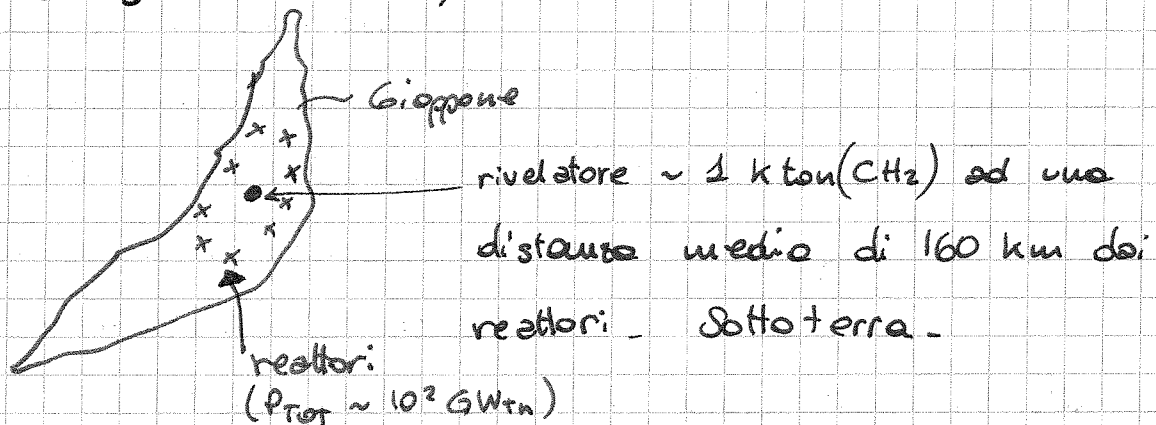 Giappone
rivelatore ~ 1 kton(CH₂) ad una
distanza media di 160 km dai
reattori. Sottoterra.
reattori
(P_TOT ~ 10² GW_Th)